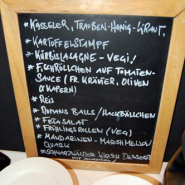 * KASSELER, TRAUBEN-HONIG-
* KARTOFFELSTAMPF
* KÜRBISLASAGNE - VEGI!
* FISCHRÖLLCHEN AUF TOMATEN-
SAUCE (FR. KRÄUTER, OLIVEN
& KAPERN)
* REIS
* DOMANS BALLS / HACKBÄLLCHEN
* FETASALAT
* FRÜHLINGSROLLEN (VEG)
* MANDARINEN-MARSHMELLOW
QUARK
WIRSCH DESSERT